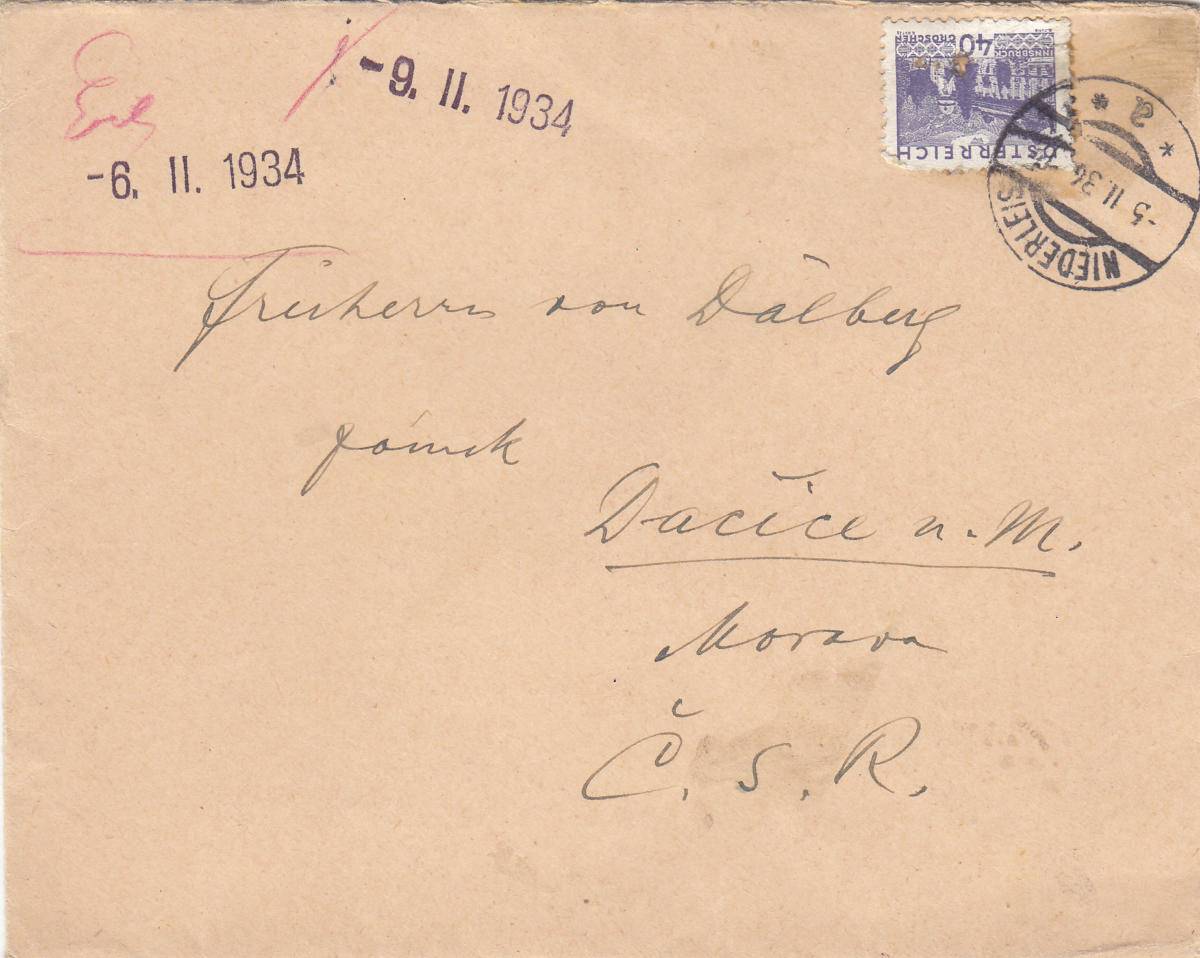 -9. II. 1934
-6. II. 1934
40
GROSCHEN
INNSBRUCK
ÖSTERREICH
* a *
-5 II. 34
NIEDERLEIS
Freiherrn von Dalberg
Dačice n. M.
Morava
Č. S. R.